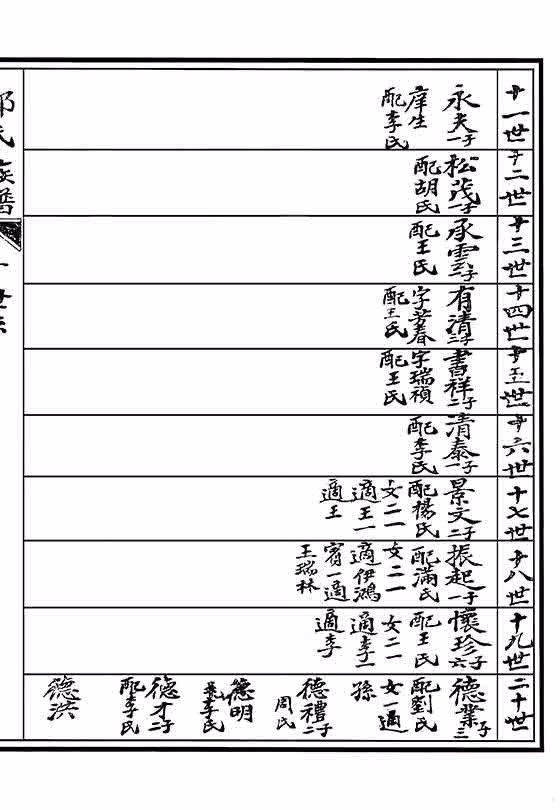 十一世
永夫一子
庠生
配李氏
十二世
松茂一子
配胡氏
十三世
承雲二子
配王氏
十四世
有清二子
字芳春
配王氏
十五世
書祥二子
字瑞禎
配王氏
十六世
清泰一子
配李氏
十七世
景文二子
配楊氏
女二一
適王一
適王
十八世
振起一子
配滿氏
女二一
適伊鴻
賓一適
王瑞林
十九世
懷珍六子
配王氏
女二一
適李一
適李
二十世
德業三子
配劉氏
女一適
孫
德禮二子
周氏
德明
李氏
德才二子
配李氏
德洪
氏族譜
世系